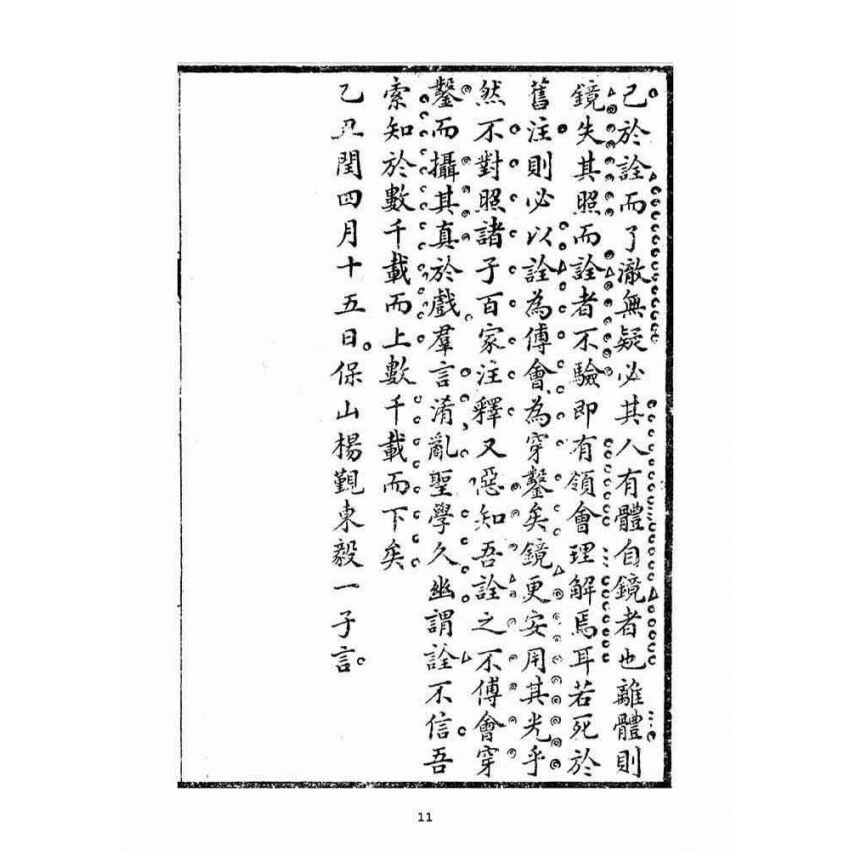 己於詮而了澈無疑必其人有體自鏡者也離體則
鏡失其照而詮者不驗即有領會理解焉耳若死於
舊注則必以詮為傅會為穿鑿矣鏡更安用其光乎
然不對照諸子百家注釋又惡知吾詮之不傅會穿
鑿而攝其真於戲羣言淆亂聖學久幽謂詮不信吾
索知於數千載而上數千載而下矣
乙丑閏四月十五日保山楊覲東毅一子言
11